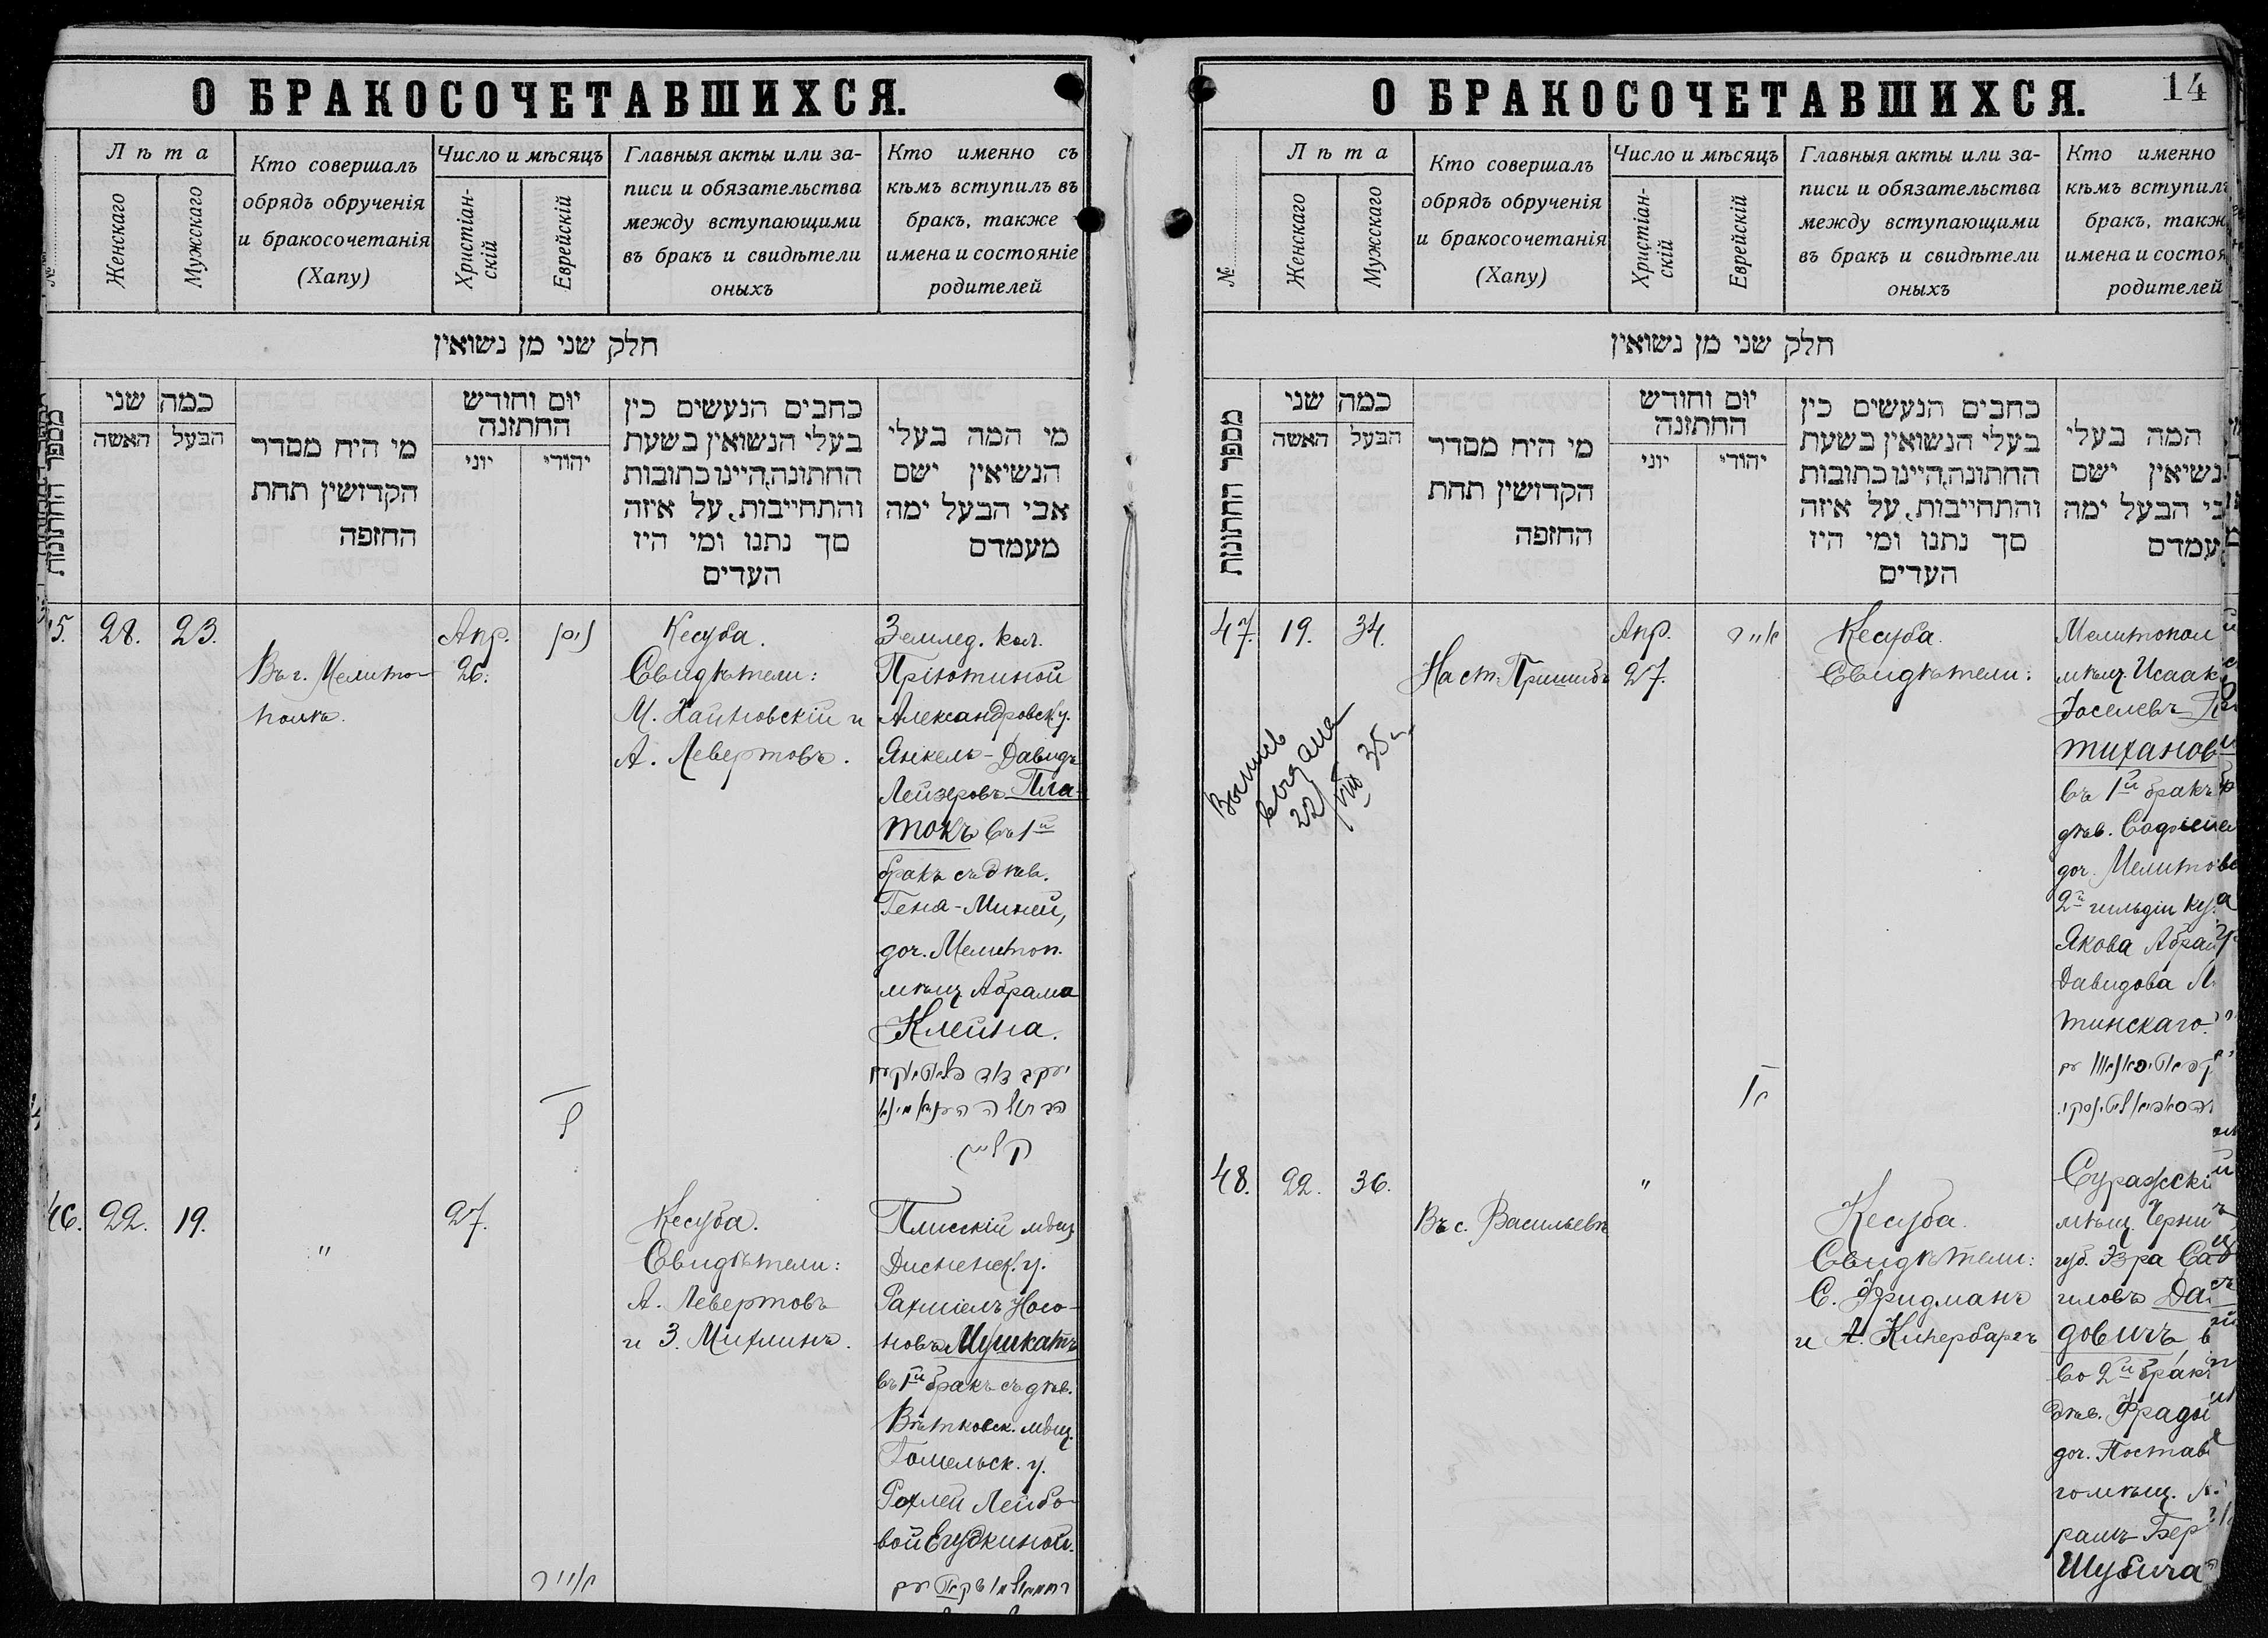 О БРАКОСОЧЕТАВШИХСЯ.
№
Лѣта
Женскаго
Мужскаго
Кто совершалъ
обрядъ обрученія
и бракосочетанія
(Хапу)
Число и мѣсяцъ
Христіан-
скій
Еврейскій
Главныя акты или за-
писи и обязательства
между вступающими
въ бракъ и свидѣтели
оныхъ
Кто именно съ
кѣмъ вступилъ въ
бракъ, также
имена и состояніе
родителей
חלק שני מן נשואין
מספר החתונות
כמה שני
האשה
הבעל
מי היח מסדר
הקדושין תחת
החופה
יום וחודש
החתונה
יוני
יהודי
כתבים הנעשים בין
בעלי הנשואין בשעת
החתונה, היינו כתובות
והתחייבות, על איזה
סך נתנו ומי היו
העדים
מי המה בעלי
הנשיאין ישם
אבי הבעל ימה
מעמדם
28. 23.
Въ г. Мелито-
полѣ.
Апр.
26.
ניסן
ל
Кесуба.
Свидѣтели:
М. Хайновскій и
А. Левертовъ.
Землед. кол.
Пріютиной
Александровск. у.
Янкель-Давидъ
Лейзеровъ Пла-
токъ въ 1й
бракъ съ дѣв.
Гена-Миней,
доч. Мелитоп.
мѣщ. Абрама
Клейна.
46. 22. 19.
"
27.
אייר
Кесуба.
Свидѣтели:
А. Левертовъ
и З. Михлинъ.
Плисскій мѣщ.
Дисненск. у.
Рахміелъ Носо-
новъ Мушкатъ
въ 1й бракъ съ дѣв.
Вѣтковск. мѣщ.
Гомельск. у.
Рохлей Лейбо-
вой Егудкиной.
О БРАКОСОЧЕТАВШИХСЯ.
14
№
Лѣта
Женскаго
Мужскаго
Кто совершалъ
обрядъ обрученія
и бракосочетанія
(Хапу)
Число и мѣсяцъ
Христіан-
скій
Еврейскій
Главныя акты или за-
писи и обязательства
между вступающими
въ бракъ и свидѣтели
оныхъ
Кто именно
кѣмъ вступилъ
бракъ, такж
имена и состоя
родителей
חלק שני מן נשואין
מספר החתונות
כמה שני
האשה
הבעל
מי היח מסדר
הקדושין תחת
החופה
יום וחודש
החתונה
יוני
יהודי
כתבים הנעשים בין
בעלי הנשואין בשעת
החתונה, היינו כתובות
והתחייבות, על איזה
סך נתנו ומי היו
העדים
המה בעלי
נשיאין ישם
בי הבעל ימה
עמדם
47. 19. 34.
На ст. Пришибъ
Апр.
27.
אייר
Кесуба.
Свидѣтели:
Мелитопол
мѣщ. Исаак
Іоселевъ
тихановъ
въ 1й бракъ
дѣв. Софіей
доч. Мелитоп
2й гильдіи куп.
Якова Абрам
Давидова
тинскаго.
48. 22. 36.
Въ с. Васильевк
"
Кесуба.
Свидѣтели:
С. Фридманъ
и А. Кипербаргъ
Суражскі
мѣщ. Черни
губ. Эзра
гиловъ Да
довичъ,
во 2й бракъ
дѣв. Фрады
доч. Постав
го мѣщ.
рамъ Бер
Шубича